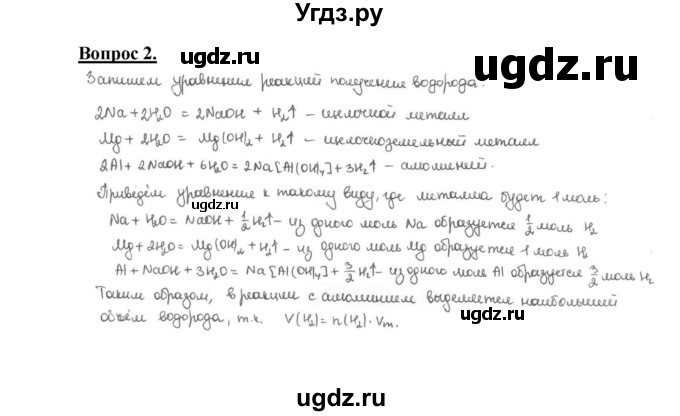 Угдз.ру
Вопрос 2.
ugdz.ru
ugdz.ru
Запишем уравнения реакций получения водорода:
2Na+2H₂O = 2NaOH + H₂↑ – щелочной металл
Mg+ 2H₂O = Mg(OH)₂ + H₂↑ – щелочноземельный металл
2Al+ 2NaOH + 6H₂O = 2Na[Al(OH)₄]+3H₂↑ – алюминий.
ugdz.ru
ugdz.ru
Приведём уравнение к такому виду, где металла будет 1 моль:
Na + H₂O = NaOH + ½H₂↑– из одного моль Na образуется ½ моль H₂
Mg+2H₂O = Mg(OH)₂ + H₂↑ – из одного моль Mg образуется 1 моль H₂
Al + NaOH + 3H₂O = Na[Al(OH)₄]+ 3/2 H₂↑– из одного моль Al образуется 3/2 моль H₂
ugdz.ru
ugdz.ru
Таким образом, в реакции с алюминием выделяется наибольший
объём водорода, т.к. V(H₂)= n(H₂)·Vm.
ugdz.ru
ugdz.ru
ugdz.ru